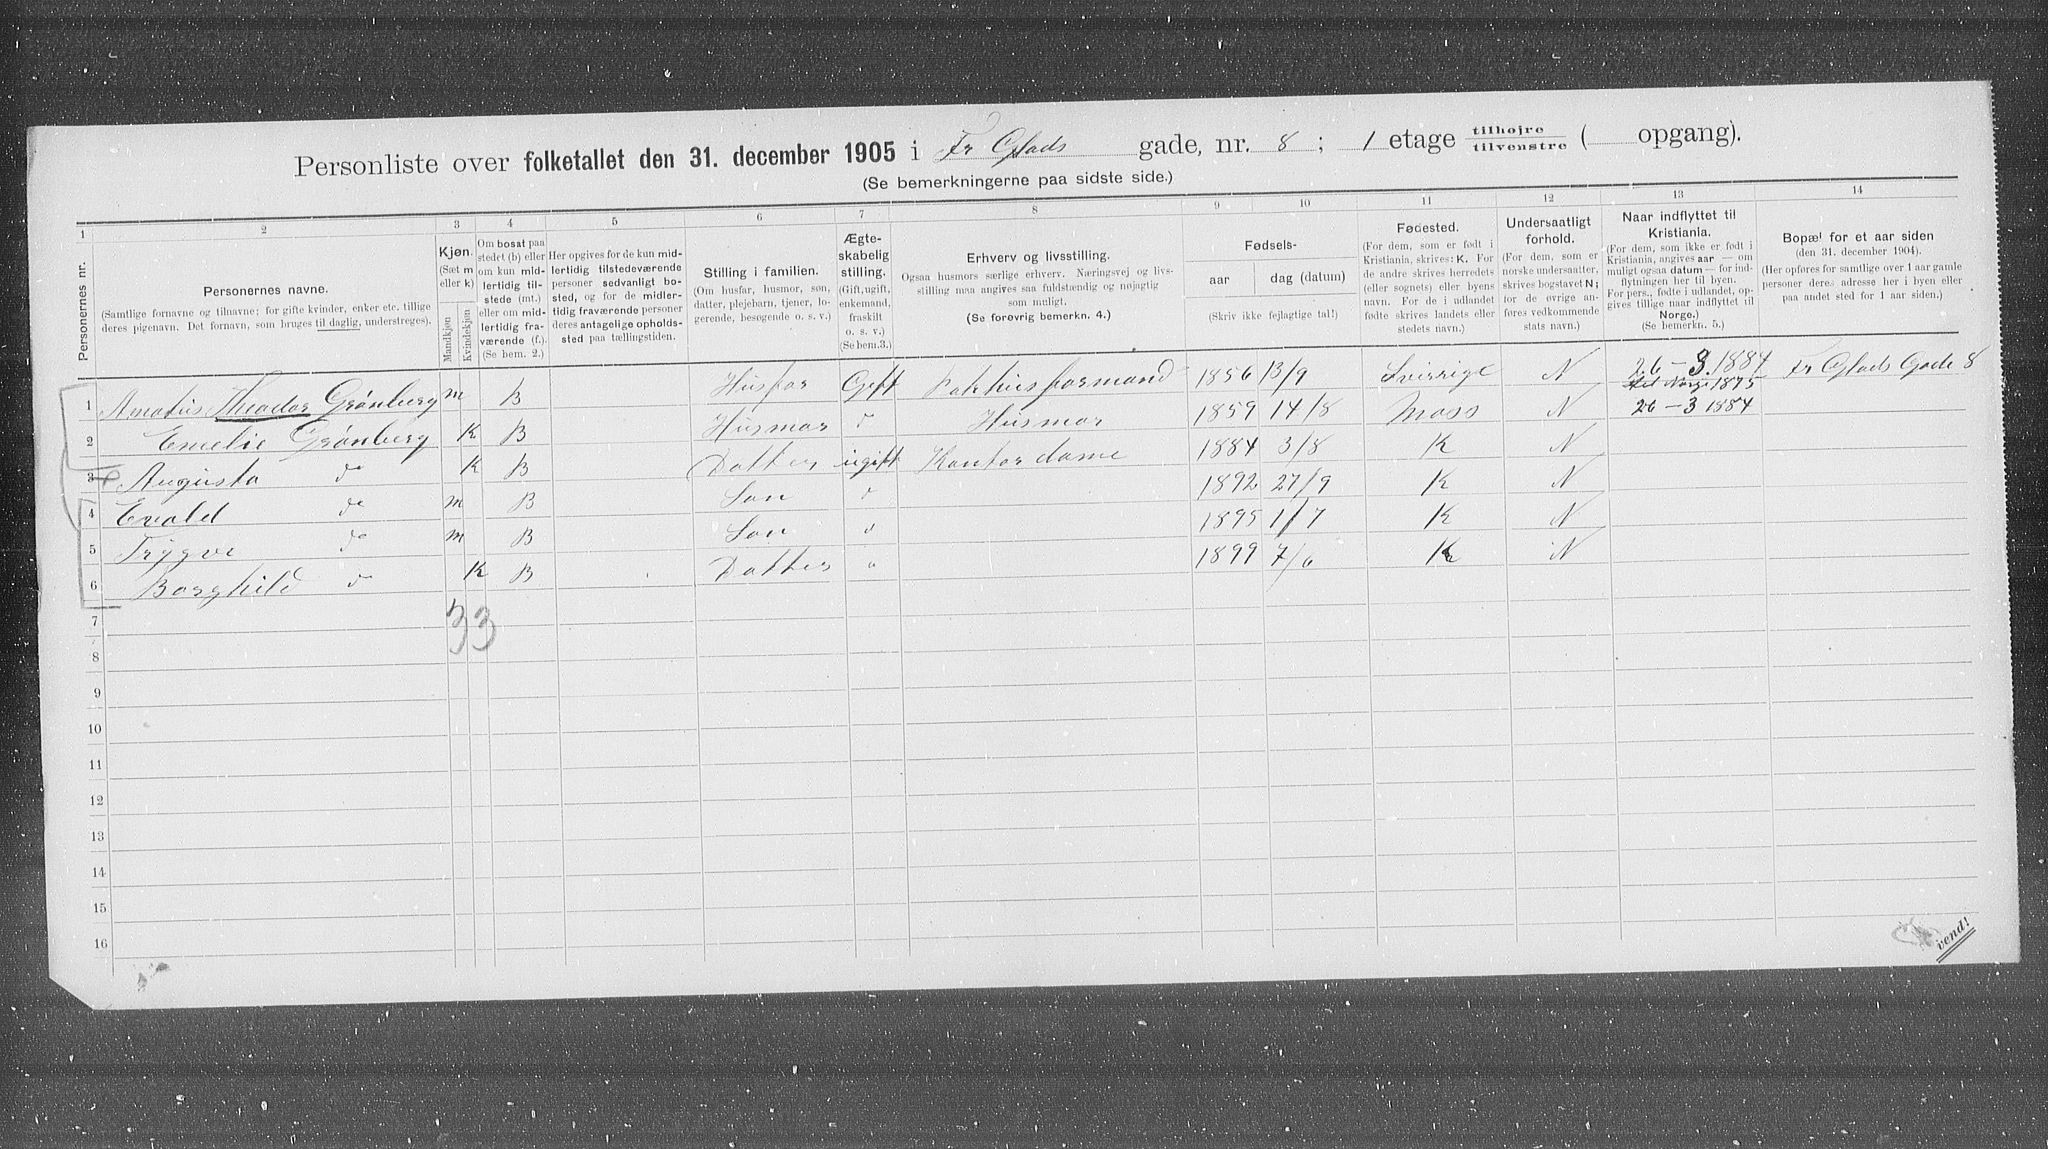 Personliste over folketallet den 31. december 1905 i Fr Glads gade, nr. 8; 1 etage tilhøjre tilvenstre ( opgang).
(Se bemerkningerne paa sidste side.)
1 2 3 4 5 6 7 8 9 10 11 12 13 14
Personernes nr.
Personernes navne.
(Samtlige fornavne og tilnavne; for gifte kvinder, enker etc. tillige
deres pigenavn. Det fornavn, som bruges til daglig, understreges).
Kjøn.
(Sæt m
eller k)
Mandkjøn
Kvindekjøn
Om bosat paa
stedet (b) eller
om kun mid-
lertidig til-
stede (mt.)
eller om mid-
lertidig fra-
værende (f.).
(Se bem. 2.)
Her opgives for de kun mid-
lertidig tilstedeværende
personer sedvanligt bo-
sted, og for de midler-
tidig fraværende personer
deres antagelige opholds-
sted paa tællingstiden.
Stilling i familien.
(Om husfar, husmor, søn,
datter, plejebarn, tjener, lo-
gerende, besøgende o. s. v.)
Ægte-
skabelig
stilling.
(Gift, ugift,
enkemand,
fraskilt
o. s. v.)
(Se bem. 3.)
Erhverv og livsstilling.
Ogsaa husmors særlige erhverv. Næringsvej og livs-
stilling maa angives saa fuldstændig og nøjagtig
som muligt.
(Se forøvrig bemerkn. 4.)
Fødsels-
aar dag (datum)
(Skriv ikke fejlagtige tal!)
Fødested.
(For dem, som er født i
Kristiania, skrives: K. For
de andre skrives herredets
(eller sognets) eller byens
navn. For de i udlandet
fødte skrives landets eller
stedets navn.)
Undersaatligt
forhold.
(For dem, som er
norske undersaatter,
skrives bogstavet N;
for de øvrige an-
føres vedkommende
stats navn.)
Naar indflyttet til
Kristiania.
(For dem, som ikke er født i
Kristiania, angives aar — om
muligt ogsaa datum — for ind-
flytningen her til byen.
For pers., fødte i udlandet, op-
gives tillige naar indflyttet til
Norge.)
(Se bemerkn. 5.)
Bopæl for et aar siden
(den 31. december 1904).
(Her opføres for samtlige over 1 aar gamle
personer deres adresse her i byen eller
paa andet sted for 1 aar siden.)
1 Amatius Theodor Grønberg m B Husfar Gift Pakhusformand 1856 13/9 Sverrige N 26-3.1884 til Norge 1875 Fr Glads Gade 8
2 Emelie Grønberg K B Husmor d Husmor 1859 14/8 Moss N 26-3 1884
3 Augusta do K B Datter ugift Kontordame 1884 3/8 K N
4 Evald do m B Søn d 1892 27/9 K N
5 Trygve do m B Søn d 1895 1/7 K N
6 Borghild do K B Datter d 1899 7/6 K N
7
33
8
9
10
11
12
13
14
15
16
vend!